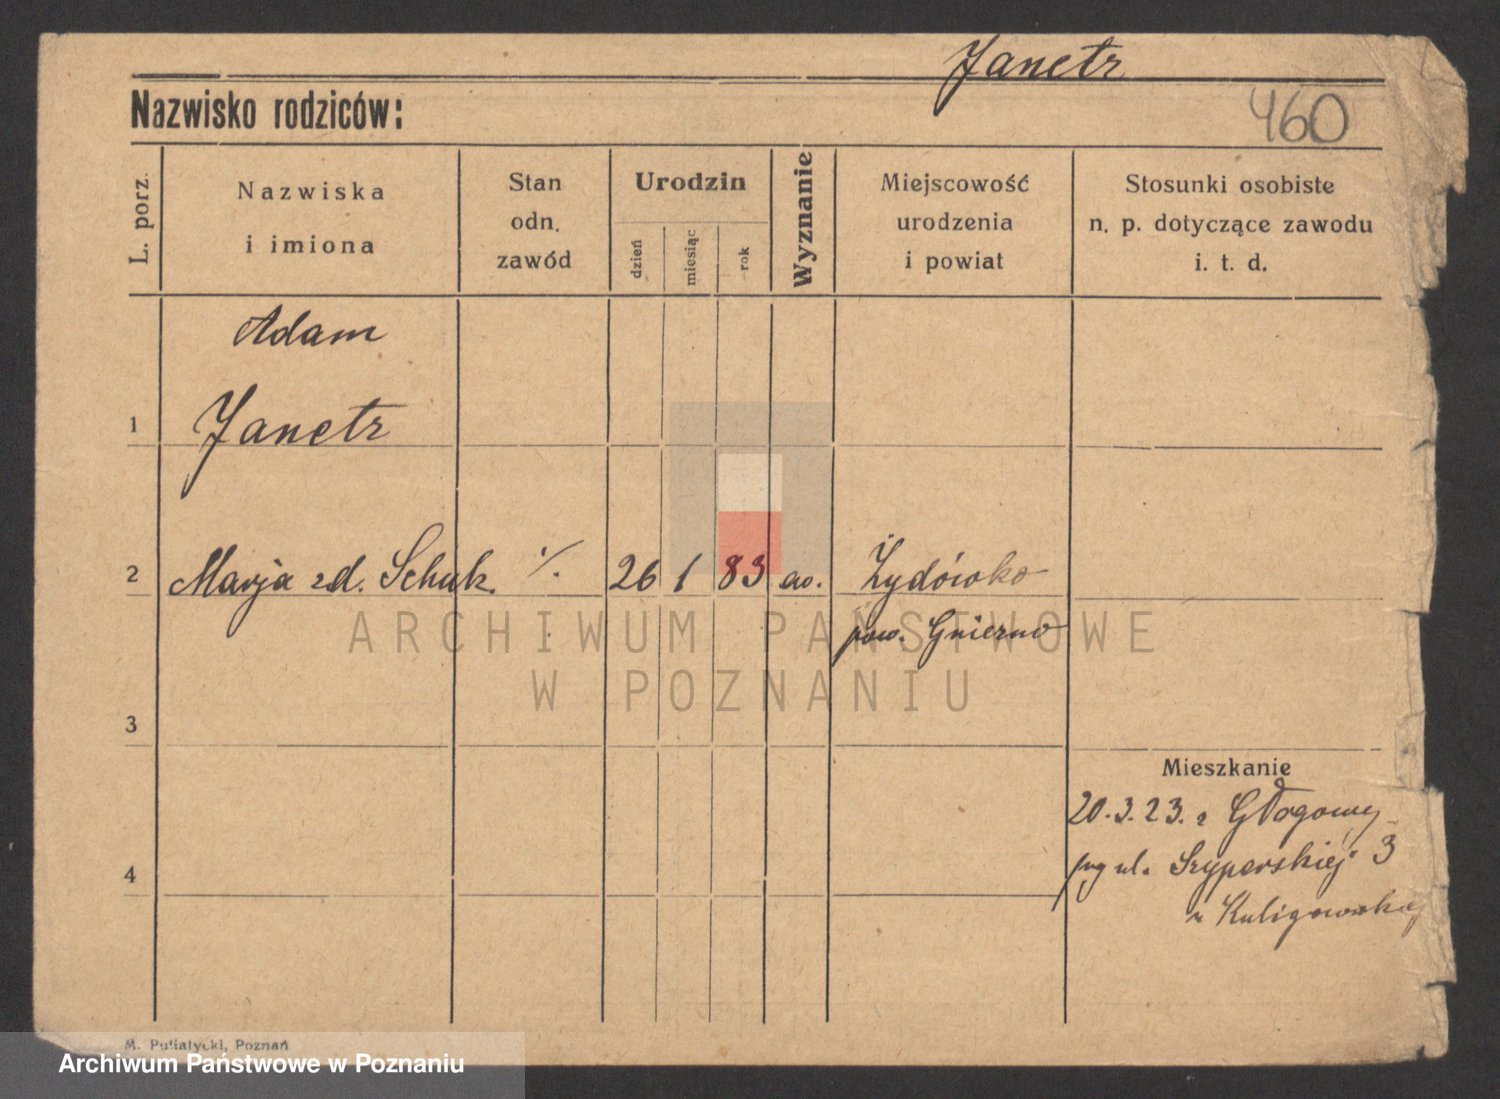 Janetz
460
Nazwisko rodziców:
L. porz.
Nazwiska
i imiona
Stan
odn.
zawód
Urodzin
dzień
miesiąc
rok
Wyznanie
Miejscowość
urodzenia
i powiat
Stosunki osobiste
n. p. dotyczące zawodu
i. t. d.
Adam
1 Janetz
2 Marja zd. Schuk. ·/. 26 1 83 ew. Żydówko
pow. Gniezno
3
Mieszkanie
20.3.23. z Głogowy
przy ul. Szyperskiej 3
u Kuligowskiej
4
M. Putiatycki, Poznań
ARCHIWUM PAŃSTWOWE
W POZNANIU
Archiwum Państwowe w Poznaniu